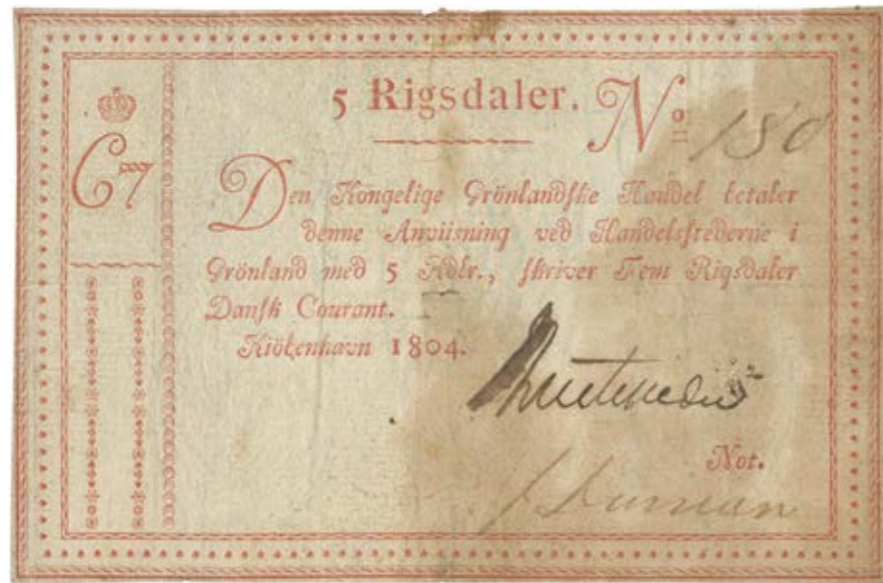 5 Rigsdaler. No 180
C7
Den Kongelige Grönlandske Handel betaler
denne Anviisning ved Handelsstederne i
Grönland med 5 Rdlr., skriver Fem Rigsdaler
Dansk Courant.
Kiöbenhavn 1804.
Not.